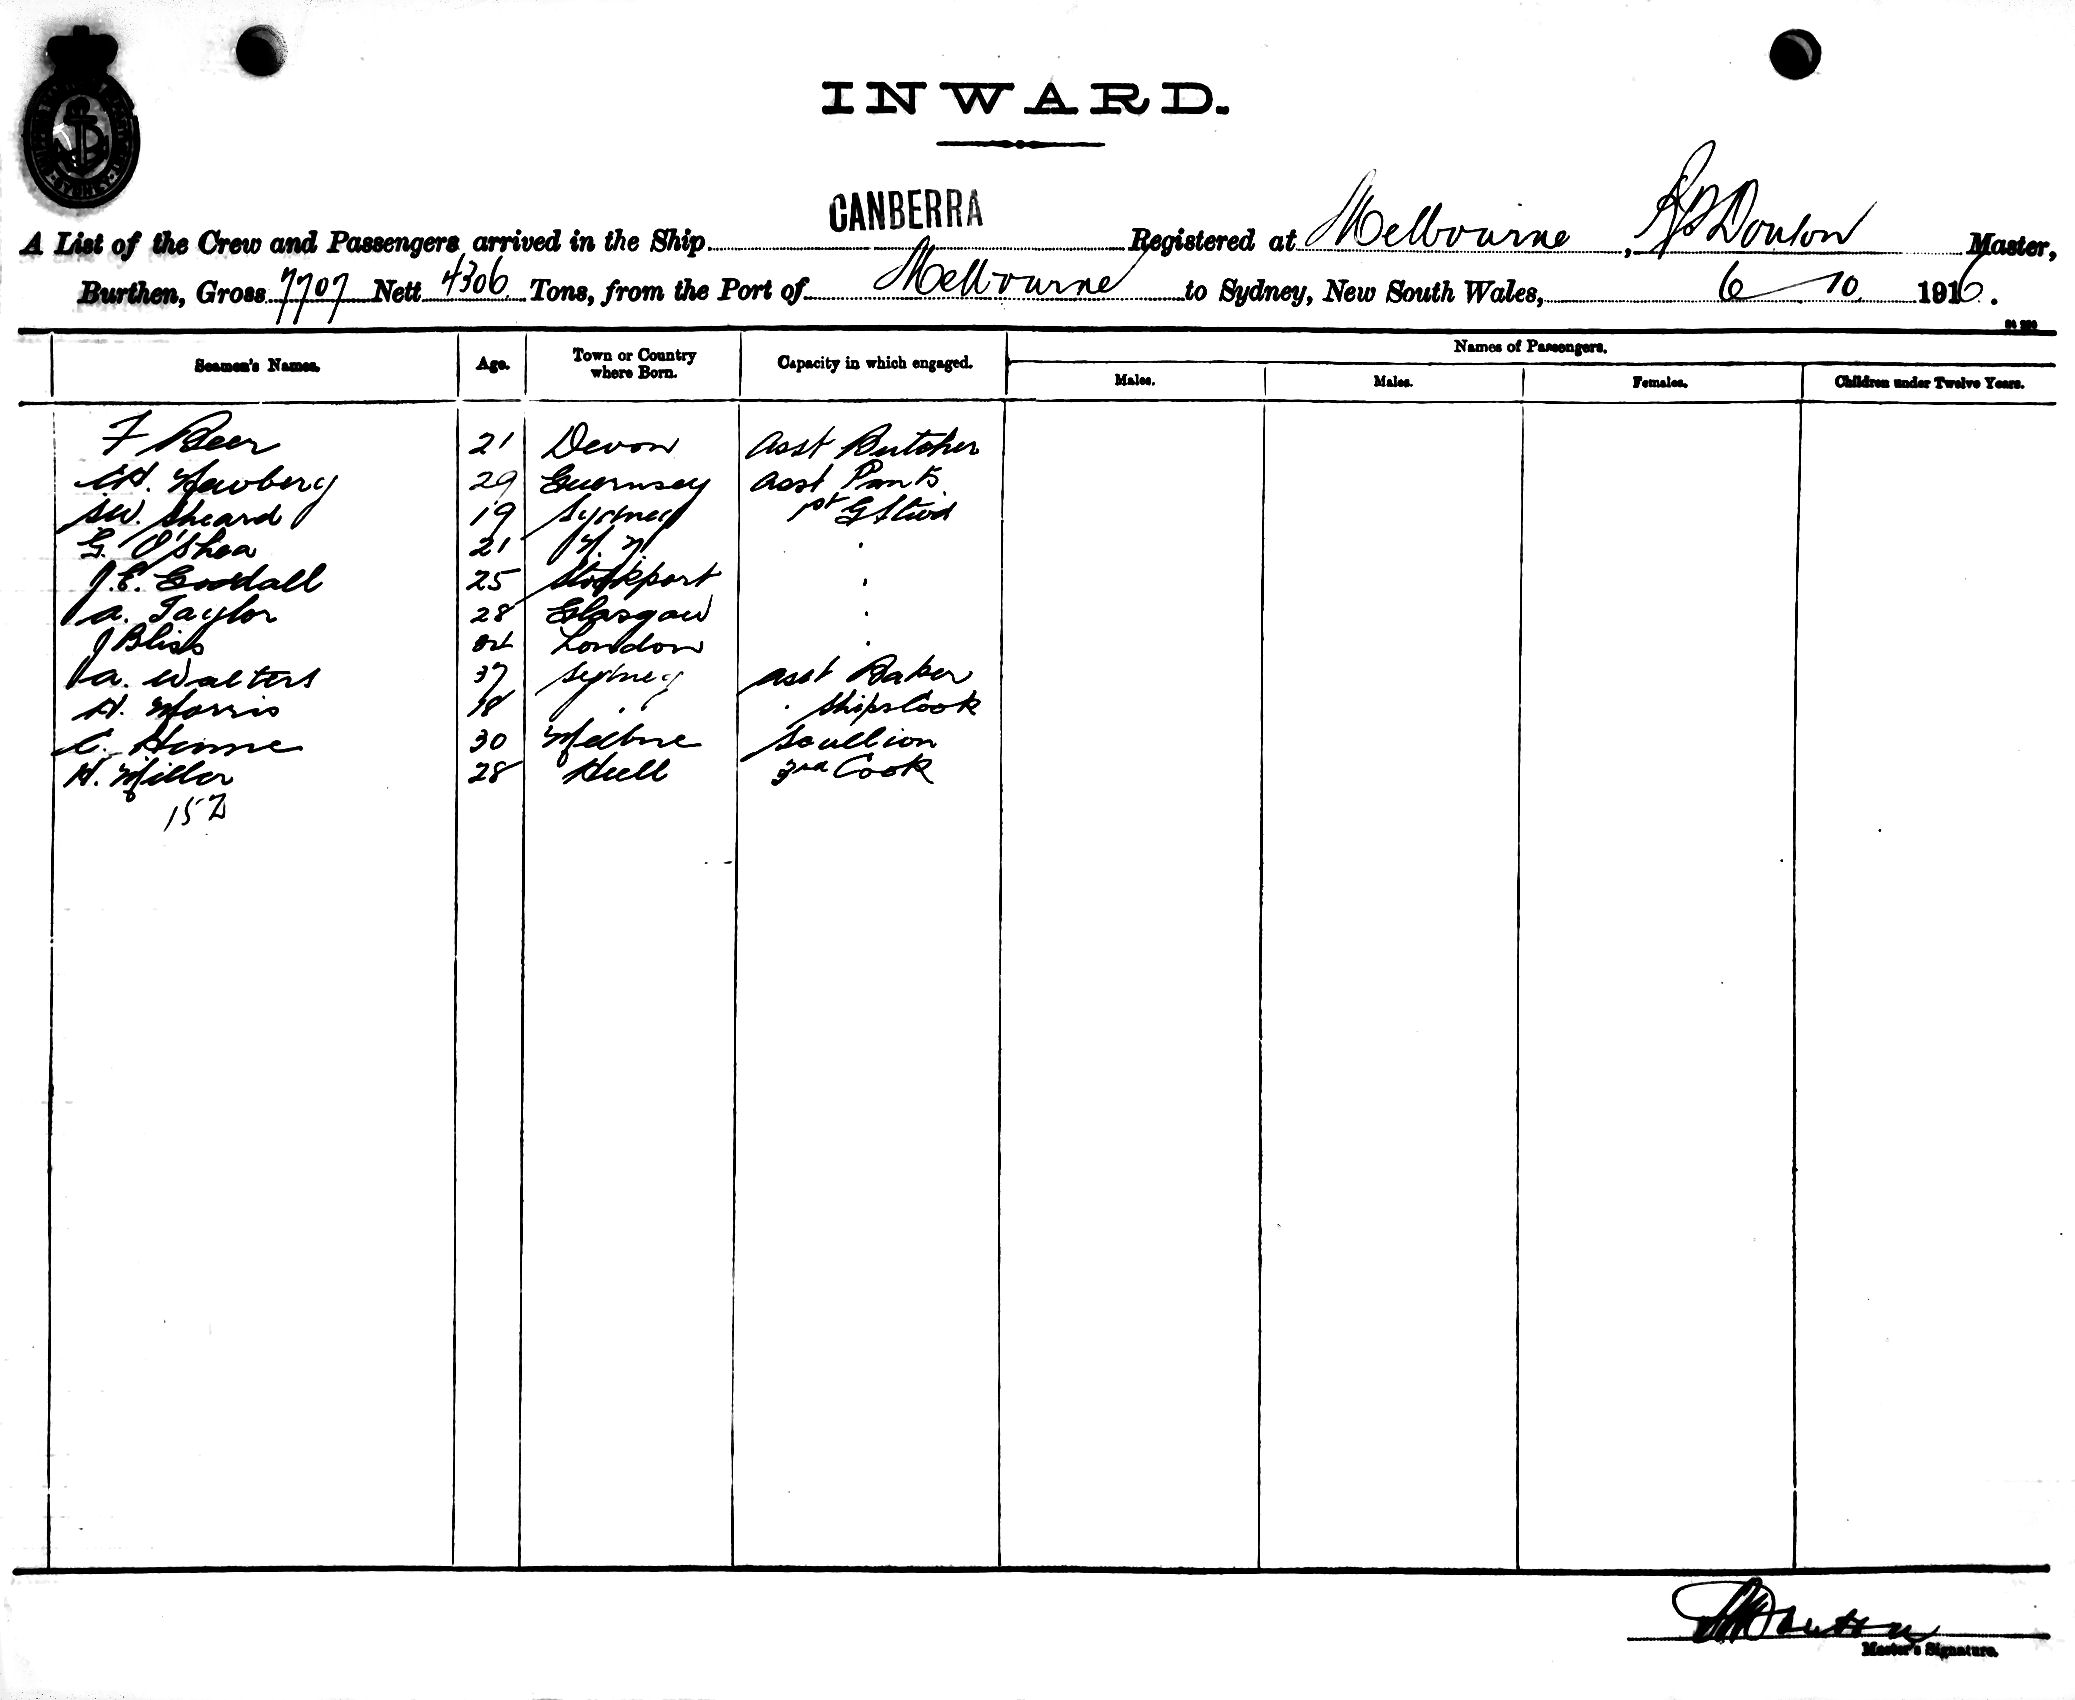 INWARD.
CANBERRA
A List of the Crew and Passengers arrived in the Ship Registered at Melbourne, Master,
Burthen, Gross 7707 Nett 4306 Tons, from the Port of Melbourne to Sydney, New South Wales, 6 10 1916.
Names of Passengers.
Seamen's Names. Age. Town or Country where Born. Capacity in which engaged. Males. Males. Females. Children under Twelve Years.
F Beer 21 Devon Asst Butcher
H. Newbery 29 Guernsey Asst Pants
S.W. Sheard 19 Sydney 1st G Stwd
G. O'Shea 21 "
J.E. Goodall 25 Stockport "
A. Taylor 28 Glasgow "
J Bliss London "
A. Walters 37 Sydney Asst Baker
H. Morris 18 " " Ships Cook
C. Hinme 30 Melbne Scullion
H. Miller 28 Hull 3rd Cook
152
Master's Signature.